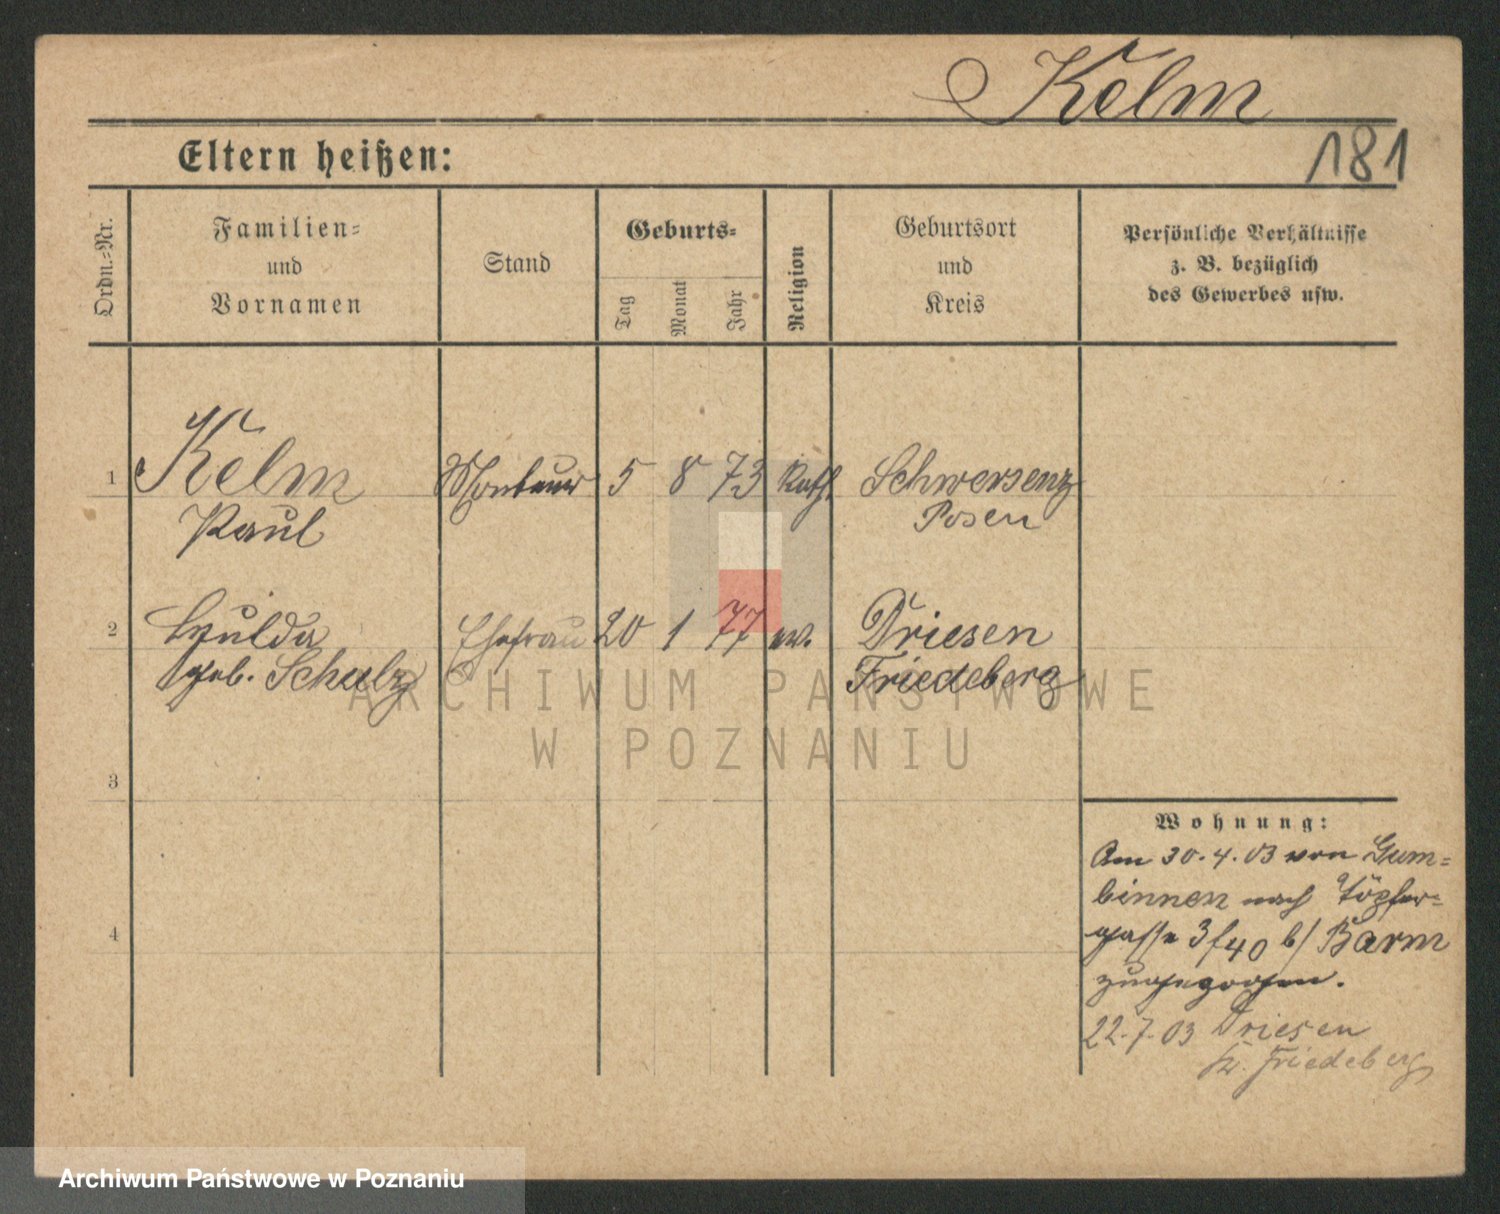 Kelm
181
Eltern heißen:
Ordn.-Nr.
Familien-
und
Vornamen
Stand
Geburts-
Tag
Monat
Jahr
Religion
Geburtsort
und
Kreis
Persönliche Verhältnisse
z. B. bezüglich
des Gewerbes usw.
1 Kelm Monteur 5 8 73 kath Schwersenz
Paul Posen
2 Hulda Ehefrau 20 1 77 ev. Driesen
geb. Schulz Friedeberg
3
4
Wohnung:
Am 30.4.03 von Gum-
binnen nach Töpfer-
gasse 3/40 b/ Barm
zugezogen.
22.7.03 Driesen
Kr. Friedeberg
ARCHIWUM PAŃSTWOWE
W POZNANIU
Archiwum Państwowe w Poznaniu